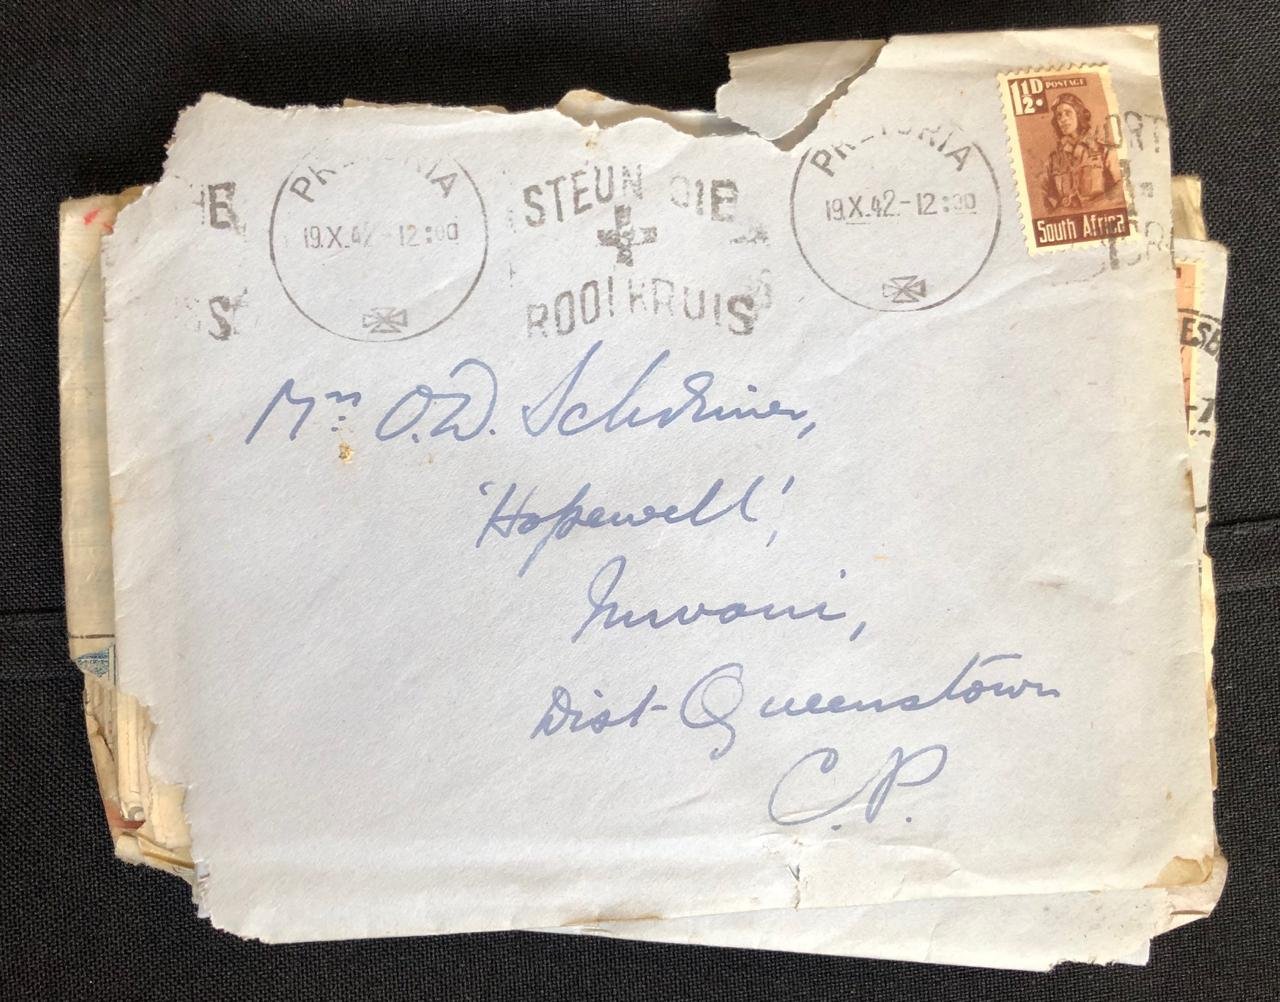 PRETORIA
19.X.42-12:00
STEUN DIE
ROOI KRUIS
PRETORIA
19.X.42-12:00
1½D. POSTAGE
South Africa
Mrs O.D. Schreiner,
'Hopewell',
Imvani,
Dist Queenstown
C.P.